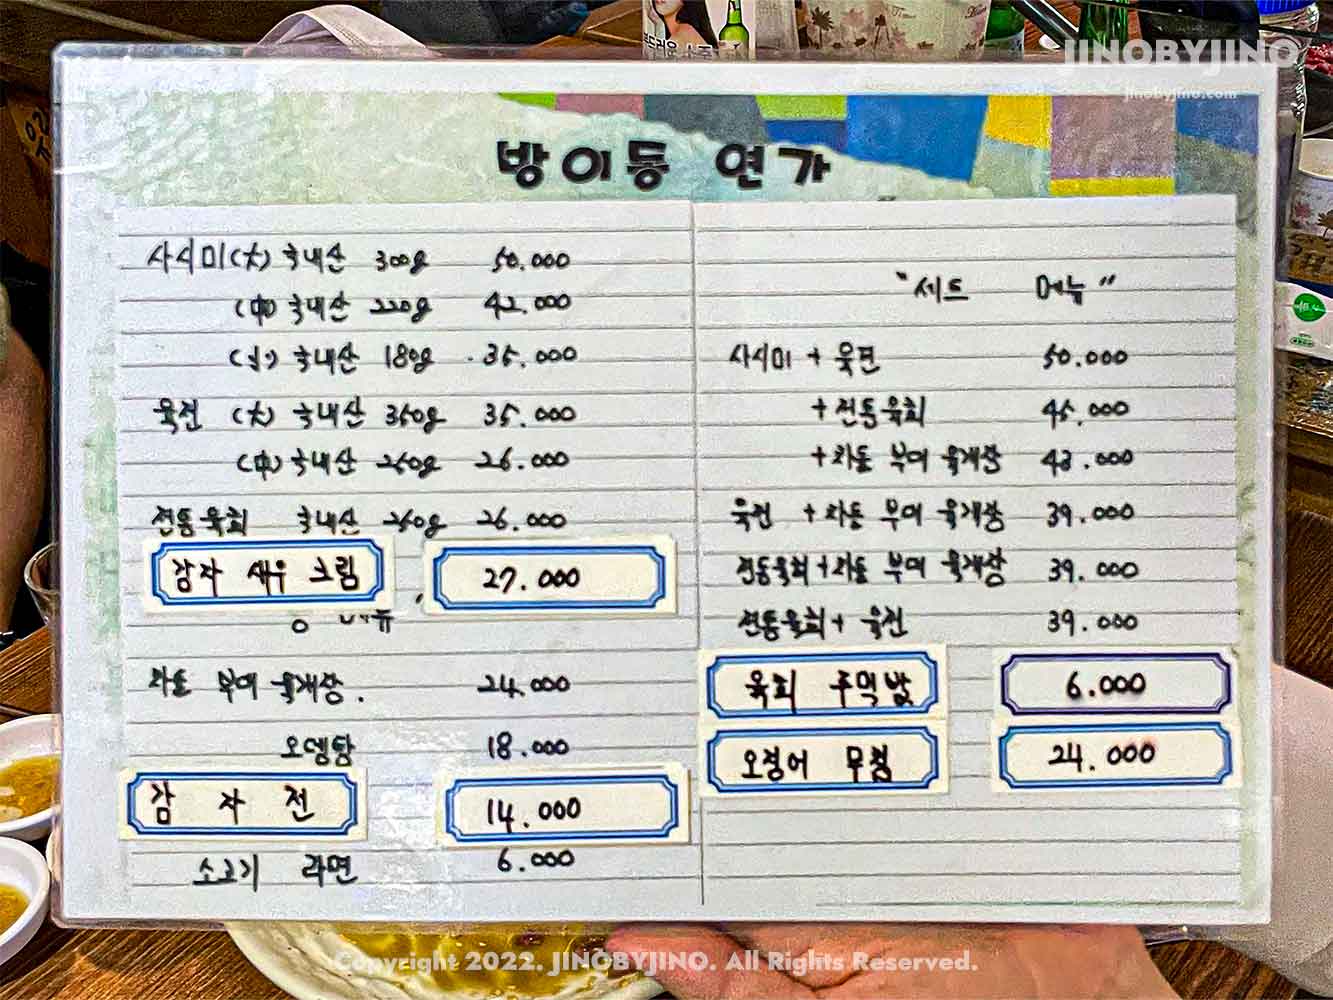 JINOBYJINO
jinobyjino.com
방이동 연가
사시미(大) 국내산 300g 50.000
(中) 국내산 220g 42.000
(小) 국내산 180g 35.000
육전 (大) 국내산 350g 35.000
(中) 국내산 260g 26.000
전통육회 국내산 260g 26.000
감자 새우 크림 27.000
차돌 부여 육개장. 24.000
오뎅탕 18.000
감자전 14.000
소고기 라면 6.000
"세트 메뉴"
사시미 + 육전 50.000
+ 전통육회 45.000
+ 차돌 부여 육개장 43.000
육전 + 차돌 부여 육개장 39.000
전통육회 + 차돌 부여 육개장 39.000
전통육회 + 육전 39.000
육회 주먹밥 6.000
오징어 무침 24.000
Copyright 2022. JINOBYJINO. All Rights Reserved.